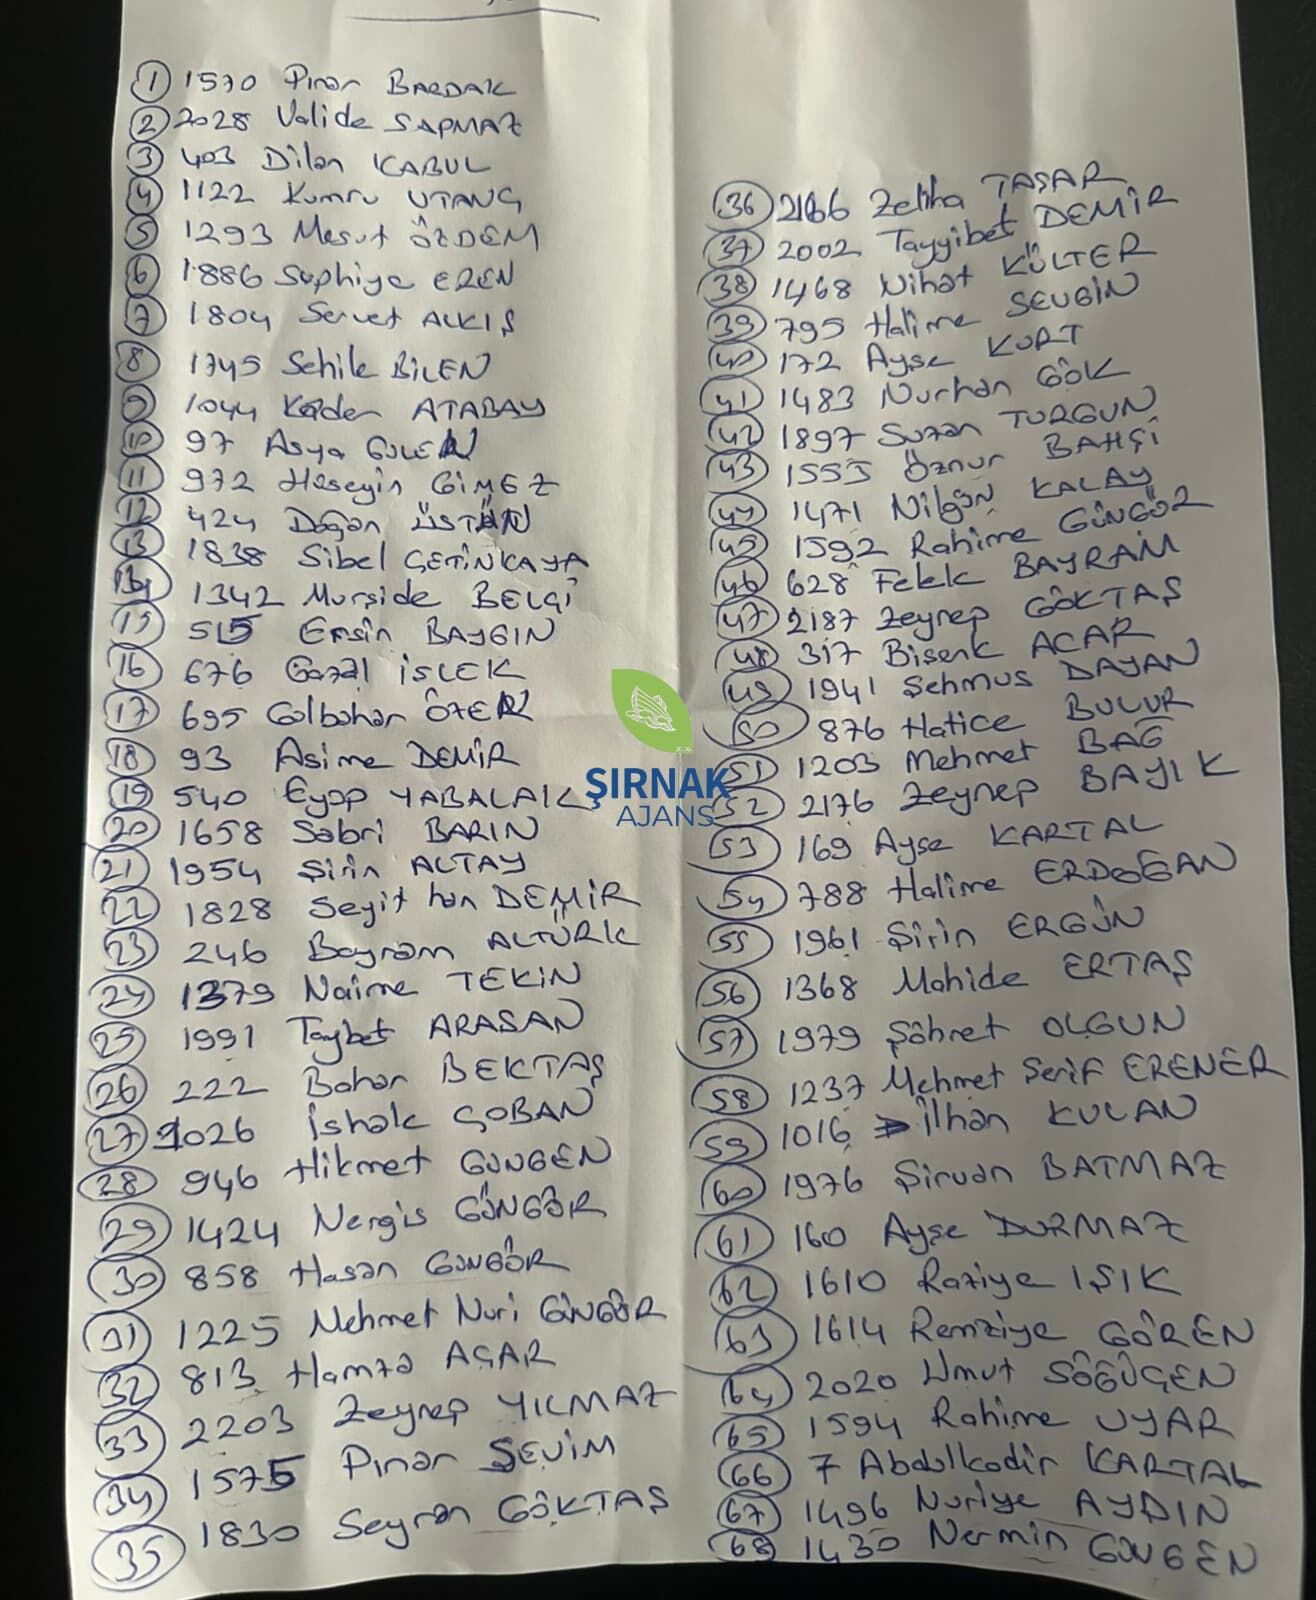 1 1570 Pınar BARDAK
2 2028 Valide SAPMAZ
3 403 Dilan KABUL
4 1122 Kumru UTANÇ
5 1293 Mesut ÖZDEM
6 1886 Suphiye EREN
7 1804 Servet ALKIŞ
8 1745 Sehile BİLEN
9 1044 Kader ATABAY
10 97 Asya GÜLEN
11 972 Hüseyin GİMEZ
12 424 Doğan ÜSTÜN
13 1838 Sibel ÇETİNKAYA
14 1342 Murşide BELGİ
15 515 Ersin BAYGIN
16 676 Gazal İŞLEK
17 695 Gülbahar ÖZER
18 93 Asime DEMİR
19 540 Eyüp YABALAK
20 1658 Sabri BARIN
21 1954 Şirin ALTAY
22 1828 Seyit han DEMİR
23 246 Bayram ALTÜRK
24 1379 Naime TEKİN
25 1991 Taybet ARASAN
26 222 Bahar BEKTAŞ
27 1026 İshak ÇOBAN
28 946 Hikmet GÜNGEN
29 1424 Nergis GÜNGÖR
30 858 Hasan GÜNGÖR
31 1225 Mehmet Nuri GÜNGÖR
32 813 Hamza AÇAR
33 2203 Zeynep YILMAZ
34 1575 Pınar SEVİM
35 1830 Seyran GÖKTAŞ
36 2166 Zeliha TAŞAR
37 2002 Tayyibet DEMİR
38 1468 Nihat KÜLTER
39 795 Halime SEVGİN
40 172 Ayşe KURT
41 1483 Nurhan GÖK
42 1897 Suzan TURGUN
43 1553 Öznur BAHŞİ
44 1471 Nilgün KALAY
45 1592 Rahime GÜNGÖR
46 628 Felek BAYRAM
47 2187 Zeynep GÖKTAŞ
48 317 Bisenk ACAR
49 1941 Şehmus DAYAN
50 876 Hatice BULUR
51 1203 Mehmet BAĞ
52 2176 Zeynep BAYIK
53 169 Ayşe KARTAL
54 788 Halime ERDOĞAN
55 1961 Şirin ERGÜN
56 1368 Mahide ERTAŞ
57 1979 Şöhret OLGUN
58 1237 Mehmet Şerif ERENER
59 1016 İlhan KULAN
60 1976 Şirvan BATMAZ
61 160 Ayşe DURMAZ
62 1610 Raziye IŞIK
63 1614 Remziye GÖREN
64 2020 Umut SÖĞÜÇEN
65 1594 Rahime UYAR
66 7 Abdulkadir KARTAL
67 1496 Nuriye AYDIN
68 1430 Nermin GÜNGEN
ŞIRNAK
AJANS